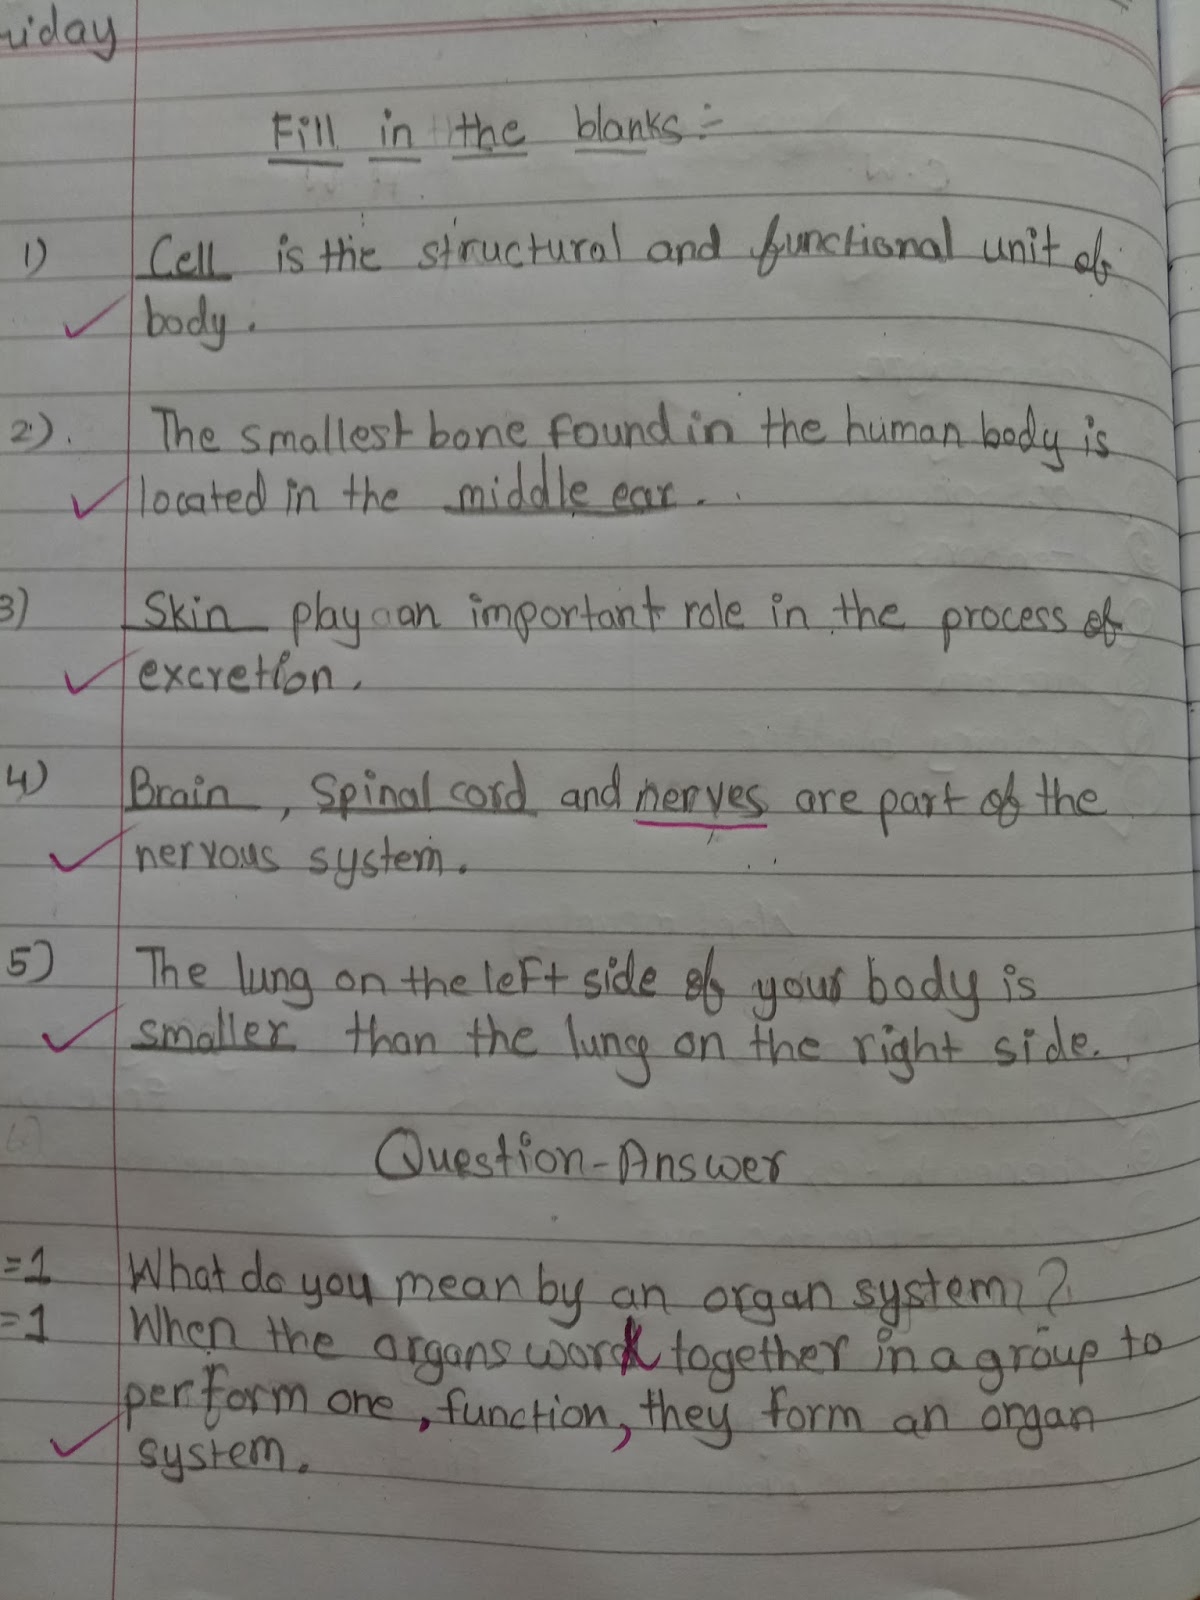 riday
Fill in the blanks :-
1) Cell is the structural and functional unit of
body.
2). The smallest bone found in the human body is
located in the middle ear.
3) Skin play an important role in the process of
excretion.
4) Brain, Spinal cord and nerves are part of the
nervous system.
5) The lung on the left side of your body is
smaller than the lung on the right side.
Question-Answer
=1 What do you mean by an organ system?
=1 When the organs work together in a group to
perform one, function, they form an organ
system.